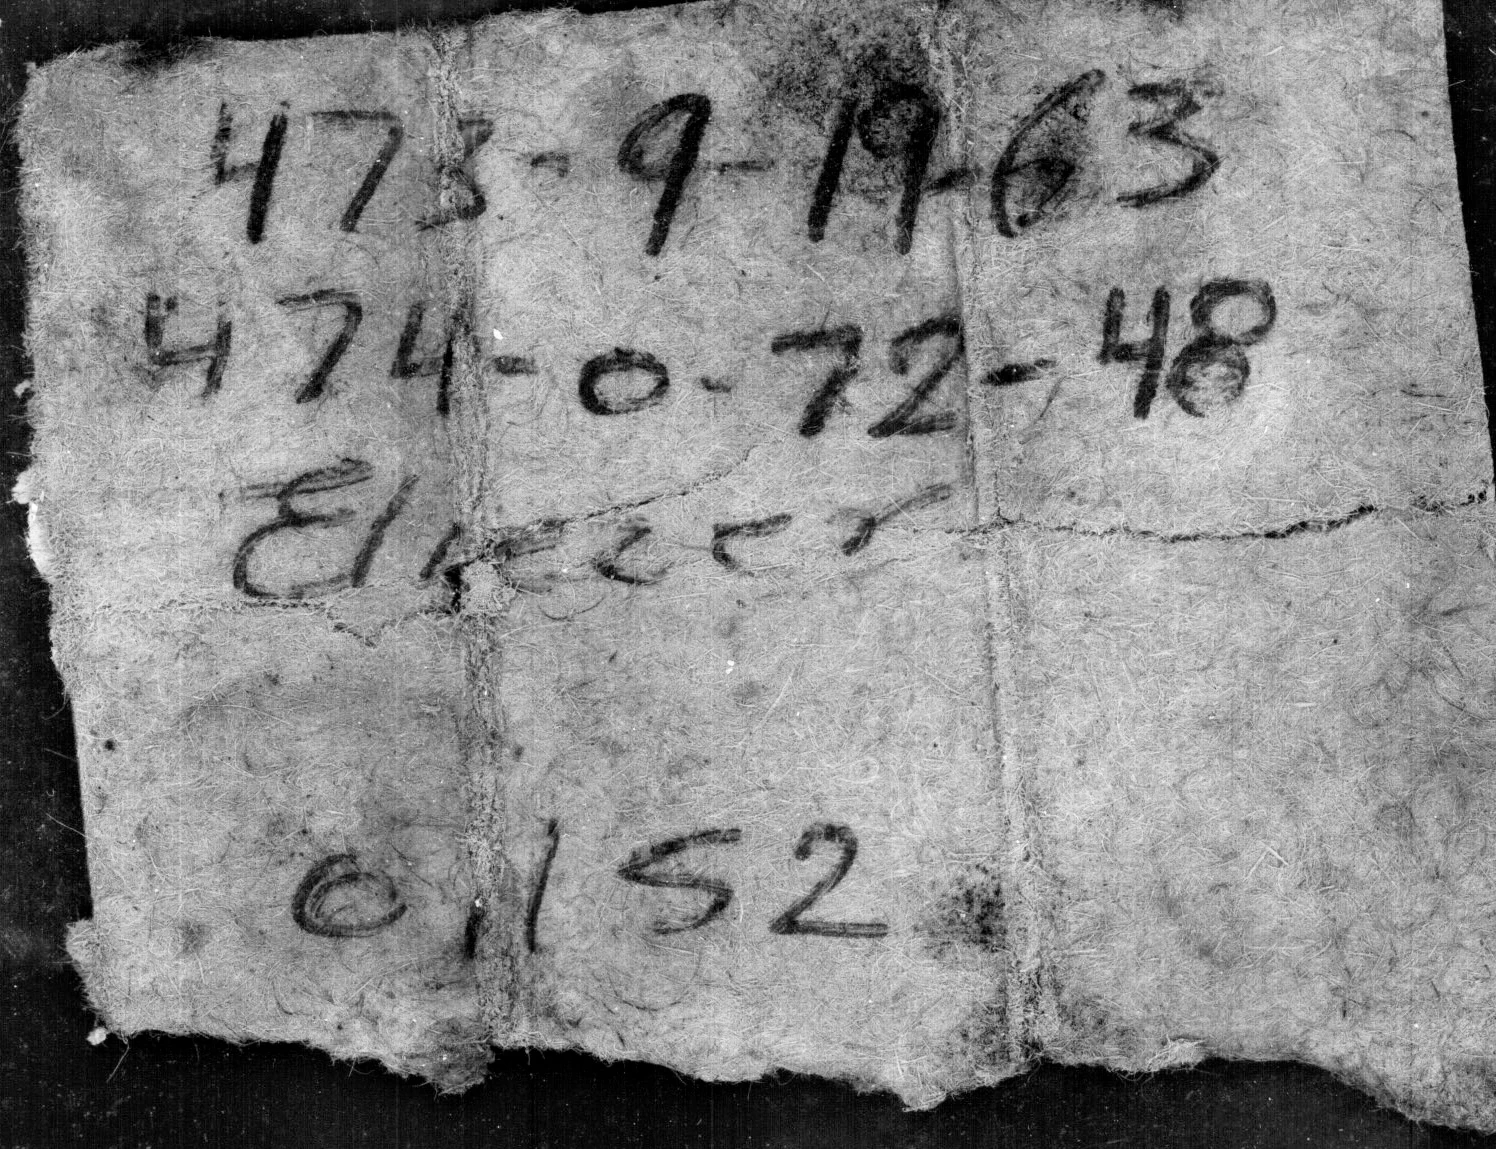 473-9-19-63
474-0-72-48
0,152